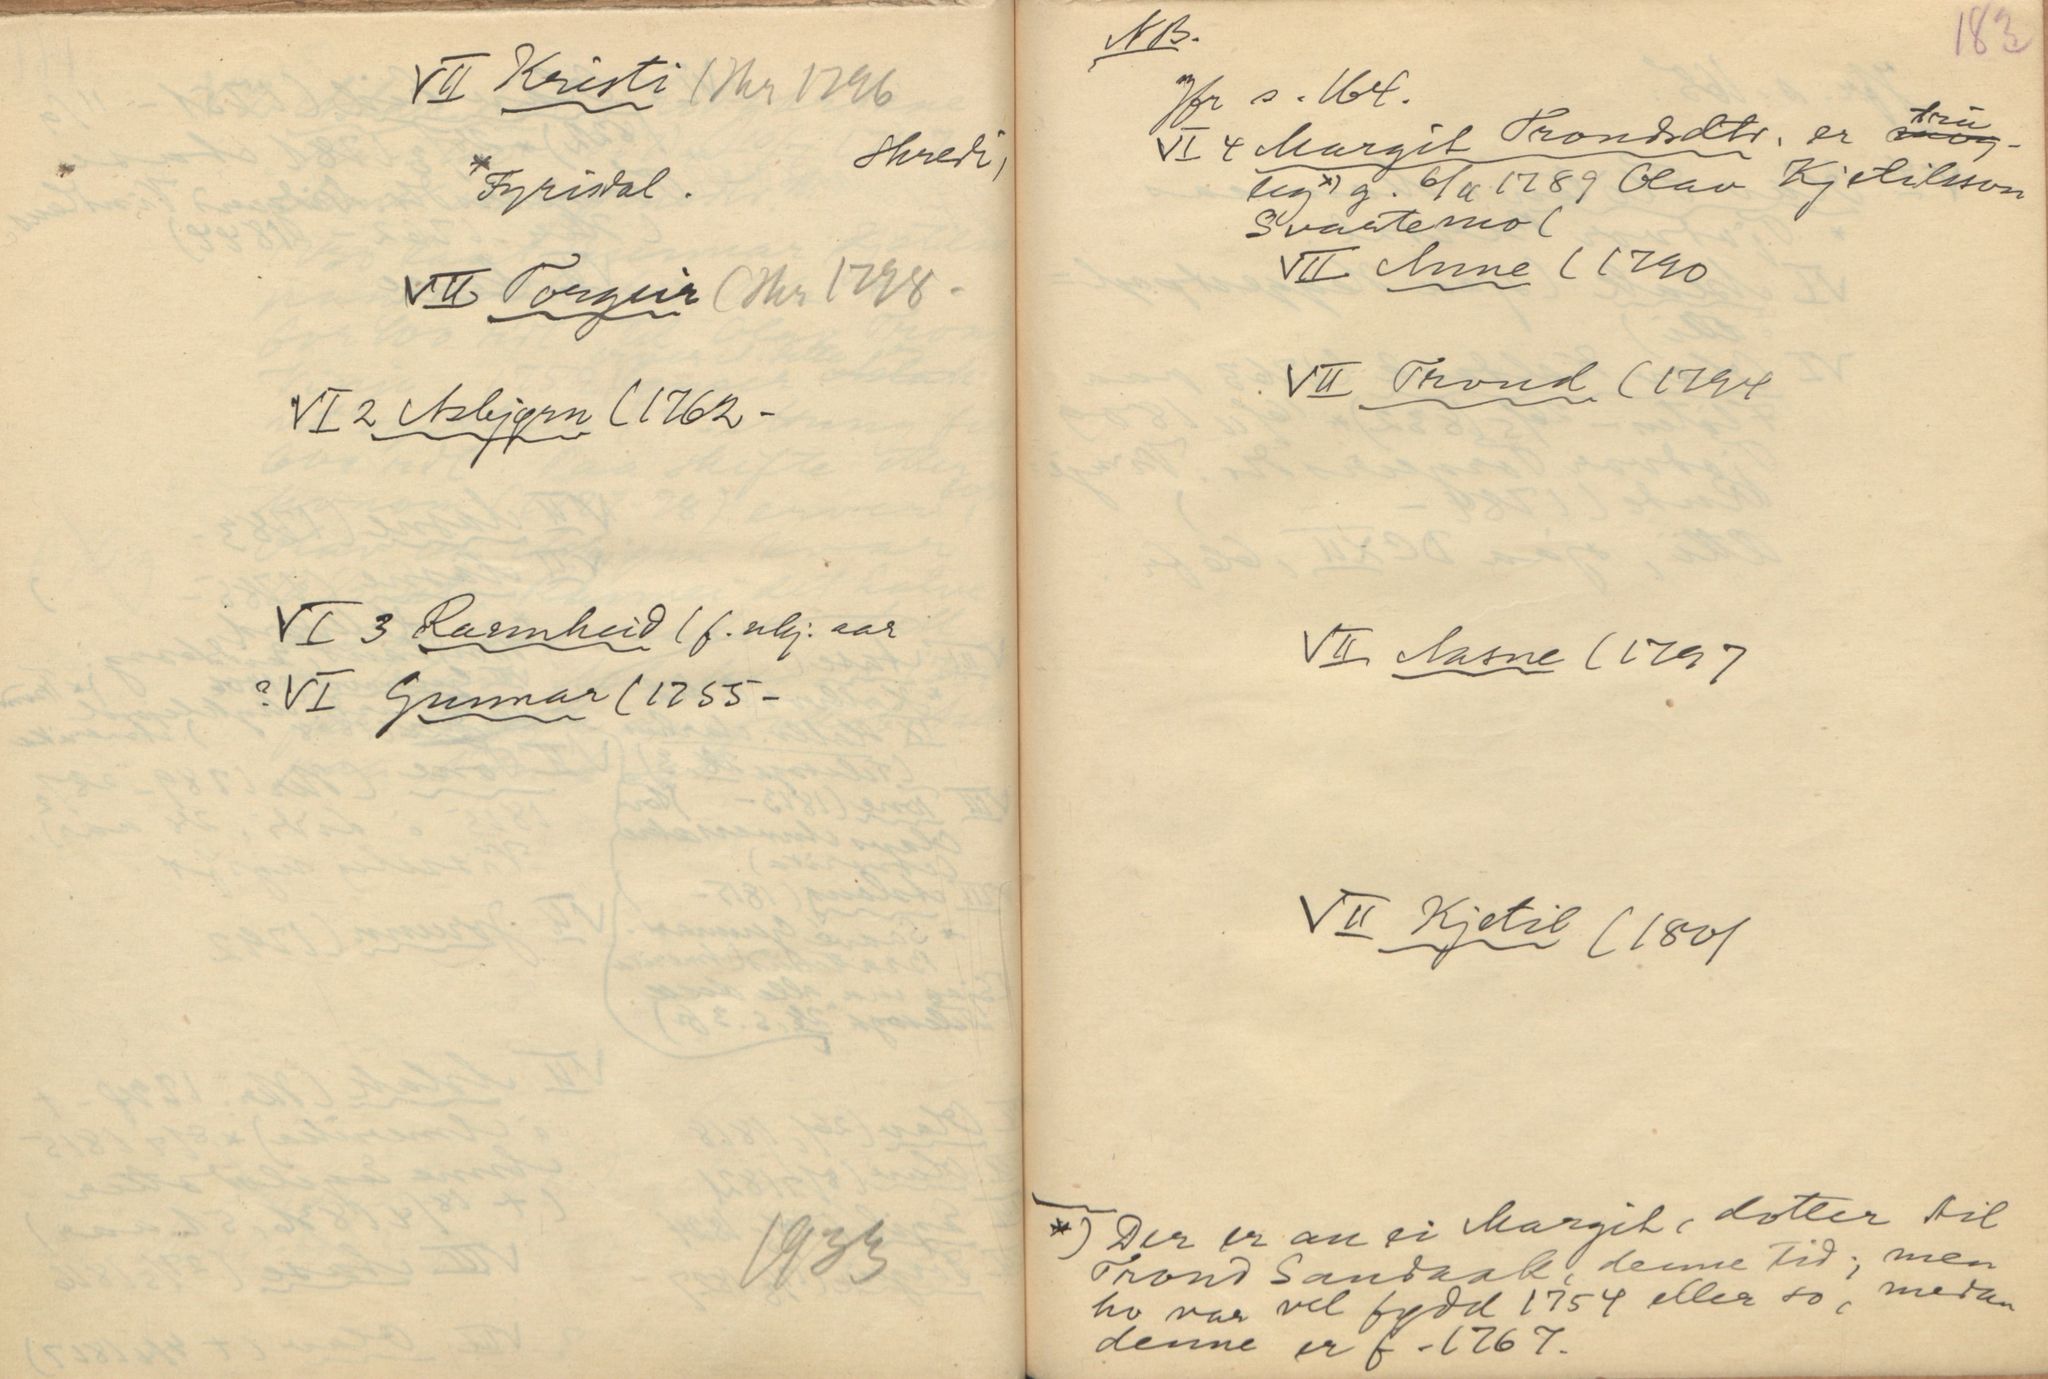 VII Kristi (Kr 1796
Skredi,
* Fyrisdal.
VII Torgeir (Kr 1798-
VI 2 Asbjørn (1762-
VI 3 Ramnheid (f. nkj. aar
? VI Gunnar (1755-
1933
183
NB.
Jfr s. 164.
VI 4 Margit Trondsdtr. er tru-
leg *) g. 6/11 1789 Olav Kjetilsson
Svartemo (
VII Anne (1790
VII Trond (1794
VII Aasne (1797
VII Kjetil (1801
*) Der er au ei Margit, dotter til
Trond Sandaak, denne tid; men
ho var vel fydd 1754 eller so, medan
denne er f. 1767.